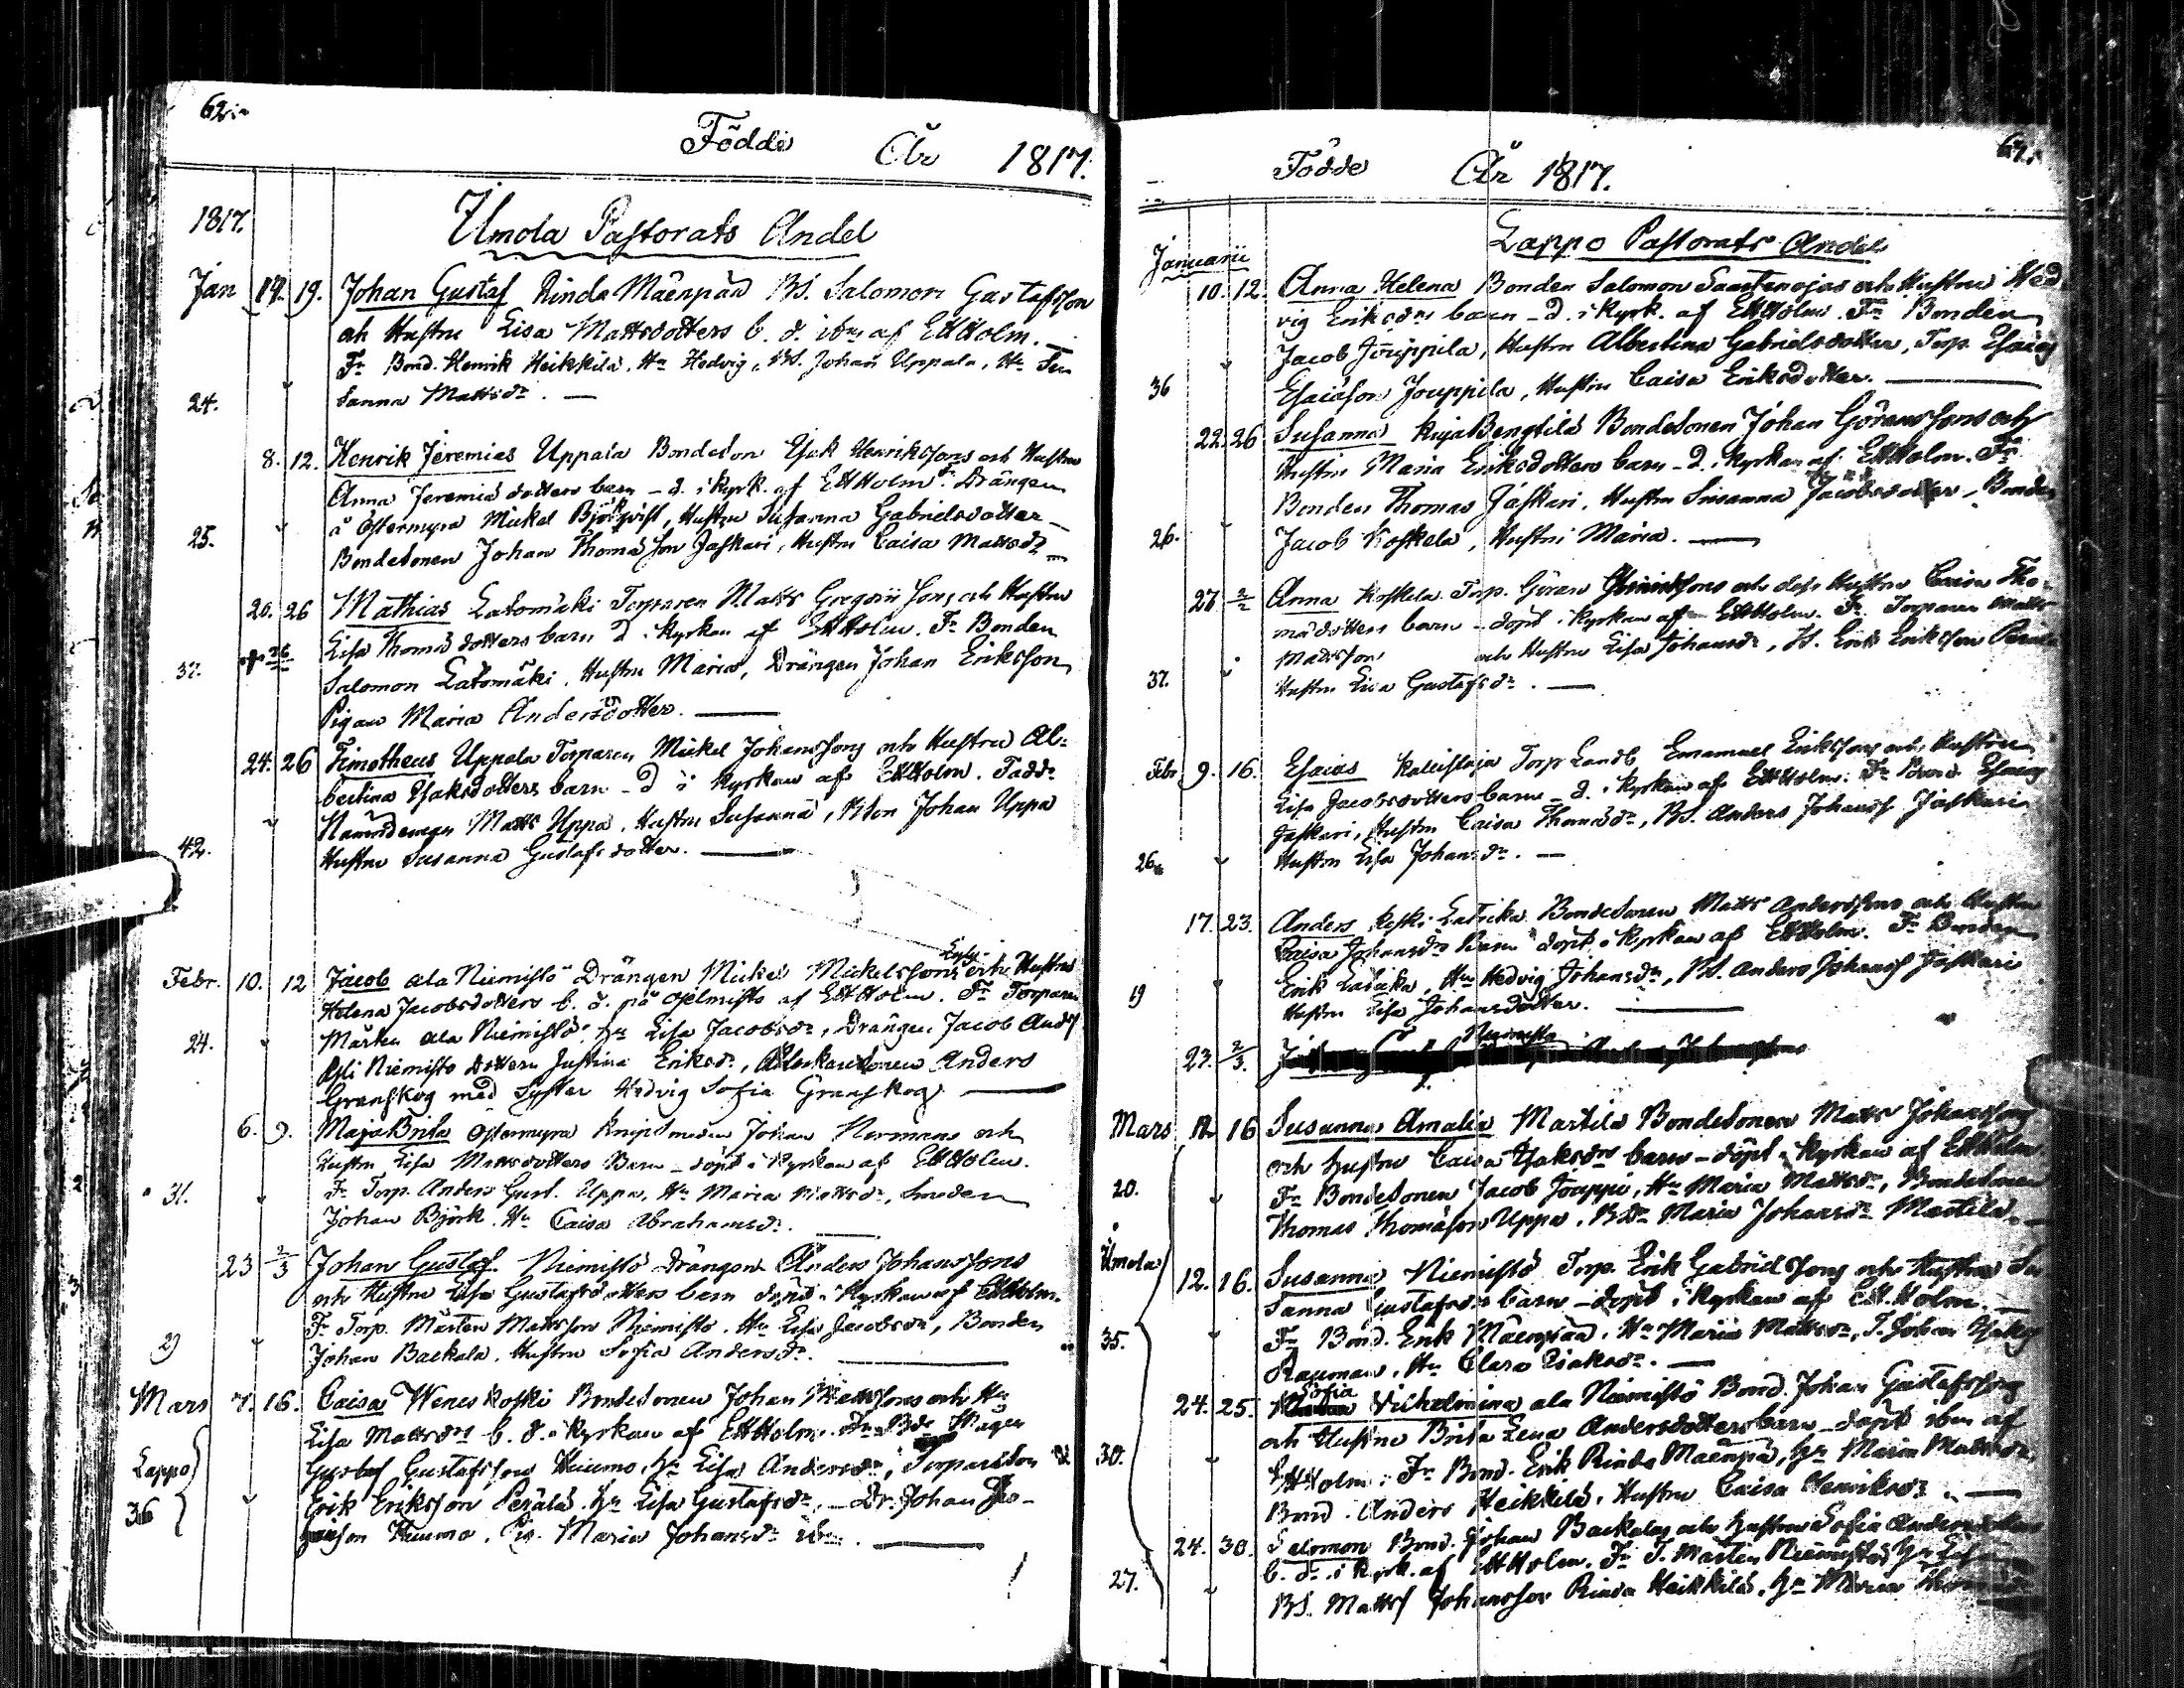 62.
Födde År 1817.
1817.
Ilmola Pastorats Andel
Jan 17. 19. Johan Gustaf Rinda Mäenpää BS. Salomon Gustafsson
och Hustru Lisa Mattsdotters b. d. ibm af EHHolm.
Fr Bond. Henrik Heikkilä, Hu Hedvig, BS. Johan Uppala, Hu Su
24. sanna Mattsdr.
8. 12. Henrik Jeremias Uppala Bondeson Isak Henrikssons och Hustru
Anna Jeremiædotters barn - d. i kyrk. af EHHolm. Fr Drängen
å Östermyra Mickel Björkqvist, Hustru Susanna Gabrielsdotter
25. Bondesonen Johan Thomasson Jaskari, Hustru Caisa Mattsdr
20. 26 Mathias Latomäki Torparen Matts Gregorii sons och Hustru
Lisa Thomædotters barn d. i kyrkan af EHHolm. Fr Bonden
37. Salomon Latomäki, Hustru Maria, Drängen Johan Eriksson
Pigan Maria Andersdotter.
24. 26 Timotheus Uppala Torparen Mickel Johanssons och Hustru Al=
bertina Isaksdotters barn - d i kyrkan af EHHolm. Fadd.
Nämndeman Matts Uppa, Hustru Susanna, BSon Johan Uppa
42. Hustru Susanna Gustafsdotter.
Febr. 10. 12 Jacob ala Niemistö Drängen Mickel Mickelssons och Hustru
Helena Jacobsdotters b. d. på af EHHolm. Fr Torparen
24. Mårten ala Niemistö, Hu Lisa Jacobsdr, Drängen Jacob
Niemistö Dottern Justina Eriksdr, Anders
Granskog med Syster Hedvig Sofia Granskog
6. 9. Maja Brita Östermyra Knipsmeden Johan Normans och
Hustru Lisa Mattsdotters Barn - döpt i kyrkan af EHHolm.
31. Fr Torp. Anders Gust. Uppa, Hu Maria Mattsdr, Smeden
Johan Björk, Hu Caisa Abrahamsdr.
23 2/3 Johan Gustaf Niemistö Drängen Anders Johanssons
och Hustru Lisa Gustafsdotters barn döpt i kyrkan af EHHolm.
Fr Torp. Mårten Mattsson Niemistö, Hu Lisa Jacobsdr, Bonden
29 Johan Backala, Hustru Sofia Andersdr.
Mars 7. 16. Caisa Weneskoski Bondesonen Johan Mattssons och Hu
Lisa Mattsdrs b. d. i kyrkan af EHHolm.
Lappo Gustaf Gustafsson Huumo, Hu Lisa Andersdr, Torpareson
36 Erik Eriksson Perälä, Hu Lisa Gustafsdr, - Dr. Johan Jo-
hansson Huumo, Pig. Maria Johansdr ibm.
Födde År 1817.
Lappo Pastorats Andel
Januarii
10. 12. Anna Helena Bonden Salomon Saarenojas och Hustru Hed
vig Eriksdrs barn - d. i kyrk. af EHHolm. Fr Bonden
Jacob Jouppila, Hustru Albertina Gabrielsdotter, Torp. Esaias
36 Esaiasson Jouppila, Hustru Caisa Eriksdotter.
22. 26 Susanna Bengtilä Bondesonen Johan Göranssons och
Hustru Maria Eriksdotters barn - d. i kyrkan af EHHolm. Fr
Bonden Thomas Jaskari, Hustru Susanna Jacobsdotter, Bonden
26. Jacob Koskela, Hustru Maria.
27 2/2 Anna Koskela Torp. Göran och dess Hustru Caisa Tho-
mædotters barn - döpt i kyrkan af EHHolm. Fr Torparen Matts
Mattsson och Hustru Lisa Johansdr, Erik Eriksson
37. Hustru Lisa Gustafsdr.
Febr 9. 16. Esaias Torp Landb Emanuel Erikssons och Hustru
Lisa Jacobsdotters barn - d. i kyrkan af EHHolm. Fr Bond. Esaias
Jaskari, Hustru Caisa Thomædr, BS. Anders Johanss Jaskari
26. Hustru Lisa Johansdr.
17. 23. Anders Keski Bondesonen Matts Anderssons och Hustru
Caisa Johansdrs Barn döpt i kyrkan af EHHolm. Fr Bonden
Erik Hu Hedvig Johansdr, BS. Anders Johanss Jaskari
19 Hustru Lisa Johansdotter.
23. 2/3. Niemistö
Mars 12 16 Susanna Amalia Martila Bondesonen Matts Johanssons
och Hustru Caisa Isaksdrs barn - döpt i kyrkan af EHHolm
20. Fr Bondesonen Jacob Jouppi, Hu Maria Mattsdr, Bondesonen
Thomas Thomasson Uppa, BDr Maria Johansdr Martila.
Ilmola
12. 16. Susanna Niemistö Torp. Erik Gabrielssons och Hustru Su
sanna Gustafsdrs barn - döpt i kyrkan af EH.Holm.
35. Fr Bond. Erik Mäenpää, Hu Maria Mattsdr, T. Johan Isaks
Rauman, Hu Clara Isaksdr.
24. 25. Sofia Vilhelmina ala Niemistö Bond. Johan Gustafssons
och Hustru Brita Lena Andersdotters barn döpt ibm af
30. EHHolm. Fr Bond. Erik Rinda Mäenpää, Hu Maria Mattsdr
Bond. Anders Heikkilä, Hustru Caisa Henriksdr.
24. 30. Salomon Bond. Johan Backalas och Hustru Sofia Andersdotters
b. d. i kyrk. af EHHolm. Fr T. Mårten Niemistö, Hu Lisa
27. BS. Matts Johansson Rinda Heikkilä, Hu Maria